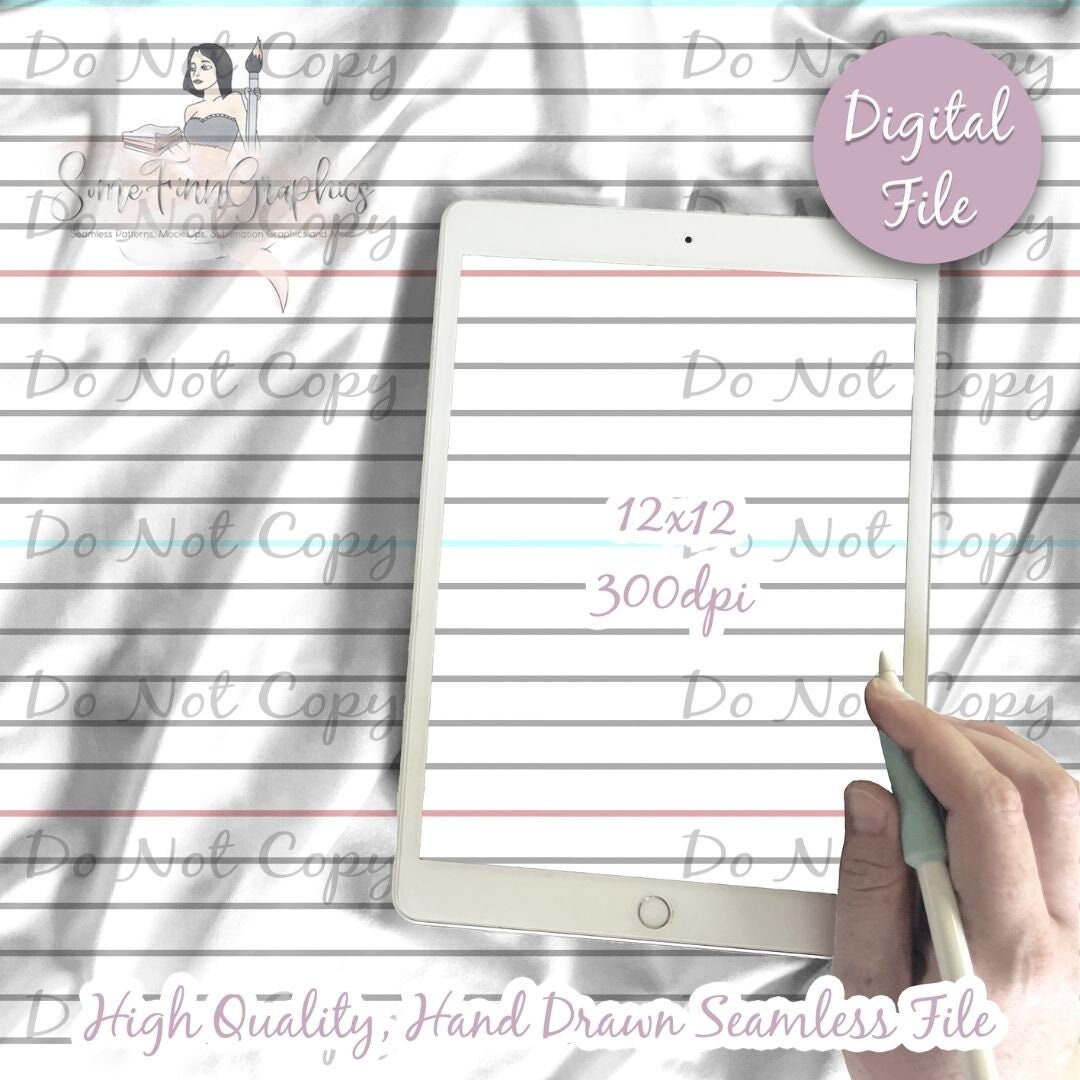 Do Not Copy Do Not Copy
Digital
File
SomeFinnGraphics
Seamless Patterns, Mock Ups, Sublimation Graphics and More
Do Not Copy Do Not Copy
Do Not Copy Do Not Copy
12x12
Do Not Copy Do Not Copy
300dpi
Do Not Copy Do Not Copy
Do Not Copy Do Not
High Quality, Hand Drawn Seamless File